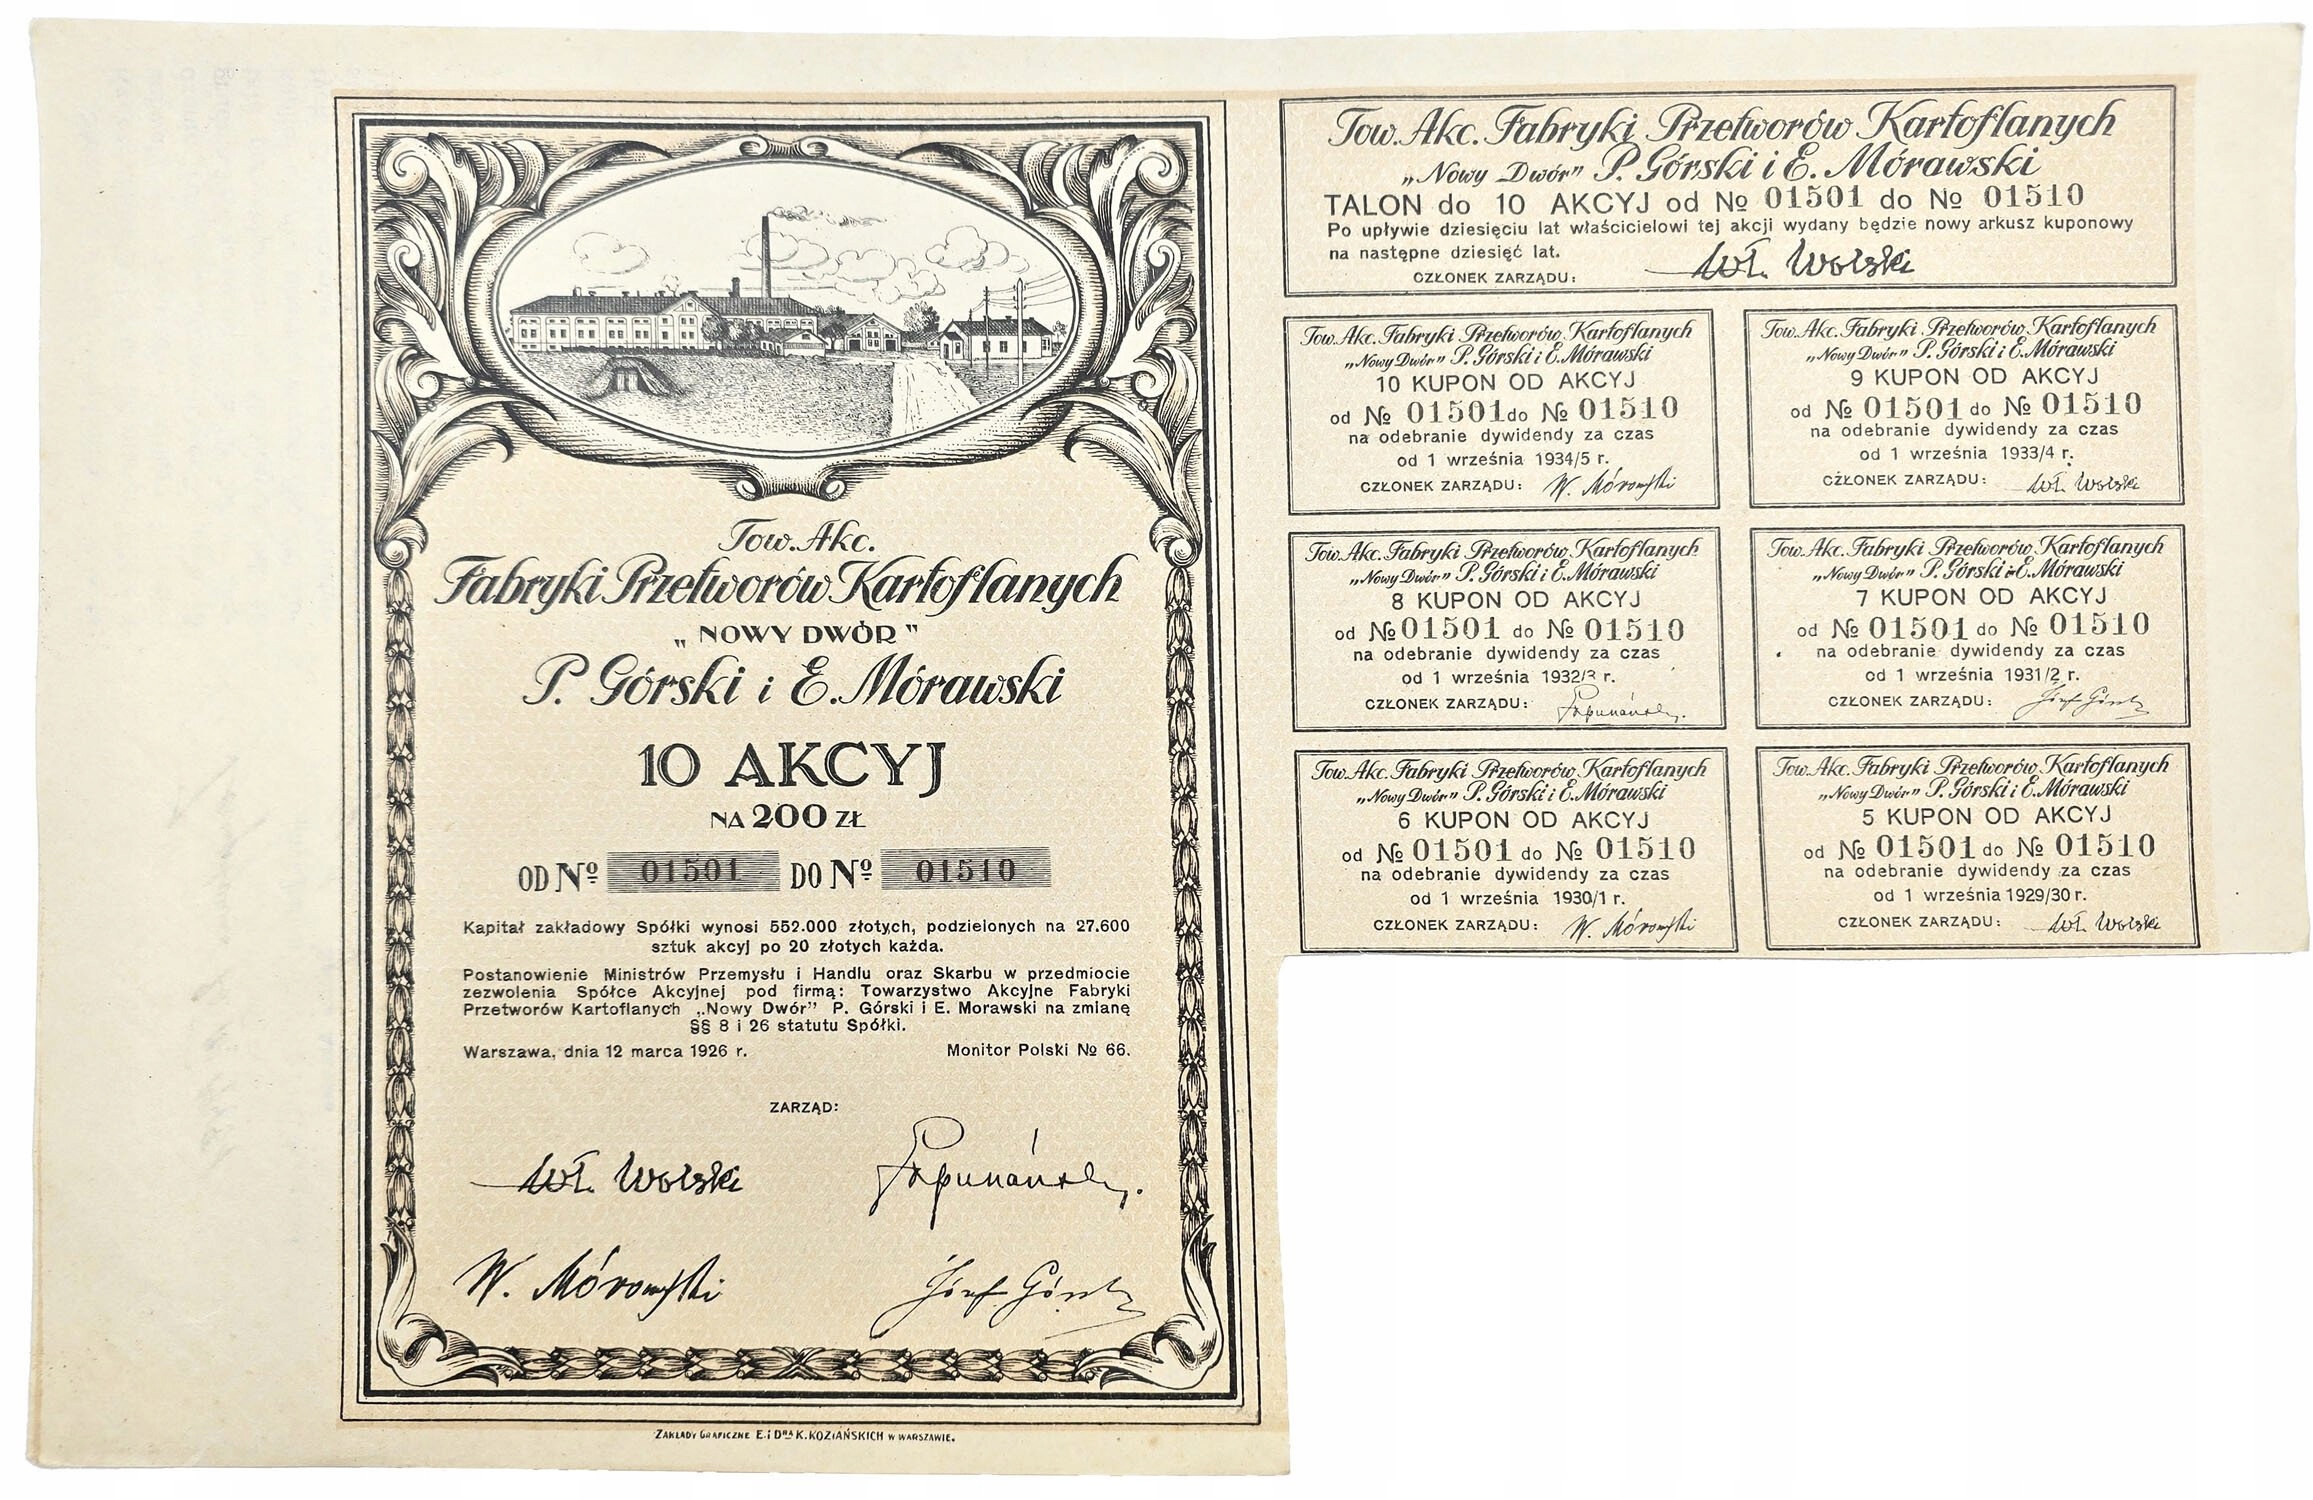 Tow. Akc.
Fabryki Przetworów Kartoflanych
„NOWY DWÓR”
P. Górski i E. Mórawski
10 AKCYJ
NA 200 ZŁ
OD № 01501 DO № 01510
Kapitał zakładowy Spółki wynosi 552.000 złotych, podzielonych na 27.600
sztuk akcyj po 20 złotych każda.
Postanowienie Ministrów Przemysłu i Handlu oraz Skarbu w przedmiocie
zezwolenia Spółce Akcyjnej pod firmą: Towarzystwo Akcyjne Fabryki
Przetworów Kartoflanych „Nowy Dwór” P. Górski i E. Morawski na zmianę
§§ 8 i 26 statutu Spółki.
Warszawa, dnia 12 marca 1926 r. Monitor Polski № 66.
ZARZĄD:
Wł. Wolski
W. Mórawski Józef Górski
ZAKŁADY GRAFICZNE E. i DRA K. KOZIAŃSKICH W WARSZAWIE.
Tow. Akc. Fabryki Przetworów Kartoflanych
„Nowy Dwór” P. Górski i E. Mórawski
TALON do 10 AKCYJ od № 01501 do № 01510
Po upływie dziesięciu lat właścicielowi tej akcji wydany będzie nowy arkusz kuponowy
na następne dziesięć lat.
CZŁONEK ZARZĄDU: Wł. Wolski
Tow. Akc. Fabryki Przetworów Kartoflanych
„Nowy Dwór” P. Górski i E. Mórawski
10 KUPON OD AKCYJ
od № 01501 do № 01510
na odebranie dywidendy za czas
od 1 września 1934/5 r.
CZŁONEK ZARZĄDU: W. Mórawski
Tow. Akc. Fabryki Przetworów Kartoflanych
„Nowy Dwór” P. Górski i E. Mórawski
9 KUPON OD AKCYJ
od № 01501 do № 01510
na odebranie dywidendy za czas
od 1 września 1933/4 r.
CZŁONEK ZARZĄDU: Wł. Wolski
Tow. Akc. Fabryki Przetworów Kartoflanych
„Nowy Dwór” P. Górski i E. Mórawski
8 KUPON OD AKCYJ
od № 01501 do № 01510
na odebranie dywidendy za czas
od 1 września 1932/3 r.
CZŁONEK ZARZĄDU:
Tow. Akc. Fabryki Przetworów Kartoflanych
„Nowy Dwór” P. Górski i E. Mórawski
7 KUPON OD AKCYJ
od № 01501 do № 01510
na odebranie dywidendy za czas
od 1 września 1931/2 r.
CZŁONEK ZARZĄDU: Józef Górski
Tow. Akc. Fabryki Przetworów Kartoflanych
„Nowy Dwór” P. Górski i E. Mórawski
6 KUPON OD AKCYJ
od № 01501 do № 01510
na odebranie dywidendy za czas
od 1 września 1930/1 r.
CZŁONEK ZARZĄDU: W. Mórawski
Tow. Akc. Fabryki Przetworów Kartoflanych
„Nowy Dwór” P. Górski i E. Mórawski
5 KUPON OD AKCYJ
od № 01501 do № 01510
na odebranie dywidendy za czas
od 1 września 1929/30 r.
CZŁONEK ZARZĄDU: Wł. Wolski